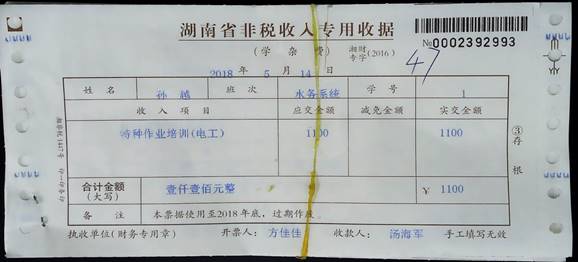 湖南省非税收入专用收据
(学杂费) 湘财专字(2016)
№0002392993
47
2018 年 5 月 14 日
姓名 孙越 班次 水务系统 学号 1
收入项目 应交金额 减免金额 实交金额
特种作业培训(电工) 1100 1100
合计金额(大写) 壹仟壹佰元整 ¥ 1100
备注 本票据使用至2018年底,过期作废
执收单位(财务专用章) 开票人: 方佳佳 收款人: 汤海军 手工填写无效
③存根